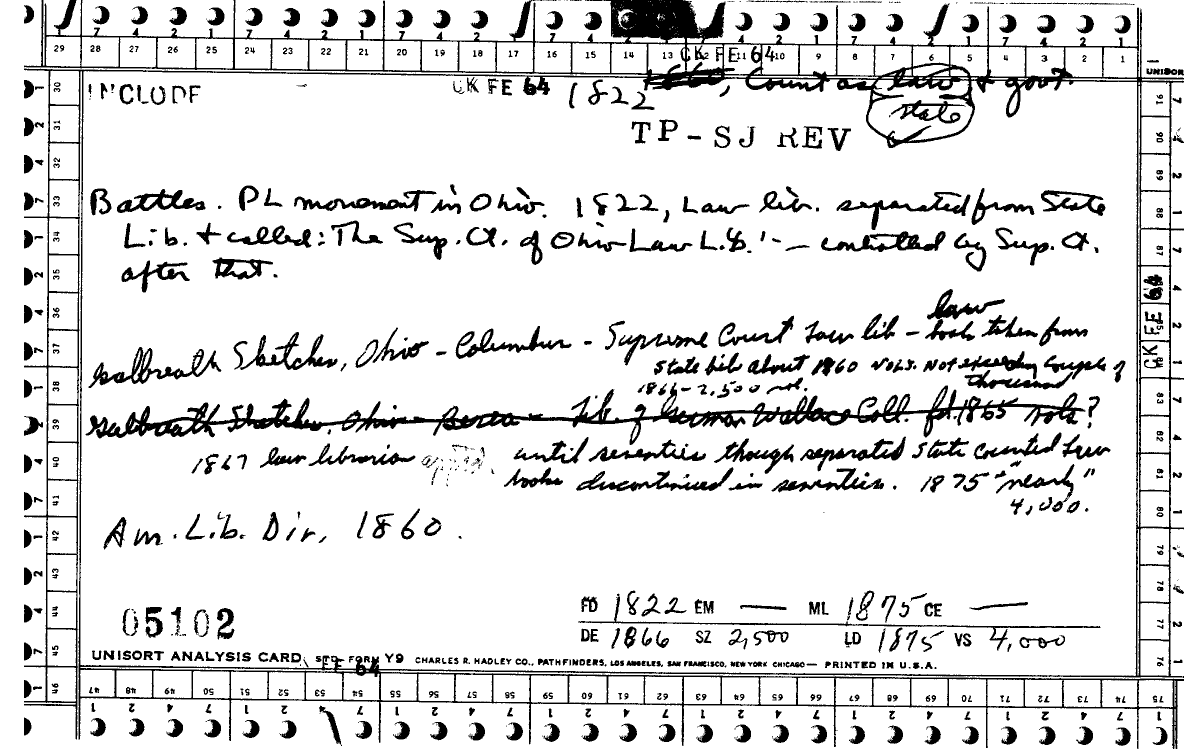 7 4 2 1 7 4 2 1 7 4 2 1 7 4 2 1 7 4 2 1 7 4 2 1
29 28 27 26 25 24 23 22 21 20 19 18 17 16 15 14 13 12 11 10 9 8 7 6 5 4 3 2 1
CK FE 64
INCLUDE CK FE 64 1822 1860, Count as law & govt.
state
TP-SJ REV
Battles. PL movement in Ohio. 1822, Law lib. separated from State
Lib. & called: The Sup. Ct. of Ohio Law Lib. - controlled by Sup. Ct.
after that.
law
Galbreath Sketches, Ohio - Columbus - Supreme Court Law lib - books taken from
State lib about 1860 vols. not exceeding couple of
thousand
1866-2,500 vol.
Galbreath Sketches, Ohio - Berea - Lib. of German Wallace Coll. fd. 1865 vols?
1867 law librarian apptd. until seventies though separated State counted Law
books discontinued in seventies. 1875 "nearly"
4,000.
Am. Lib. Dir, 1860.
CK FE 64
05102
FD 1822 EM — ML 1875 CE —
DE 1866 SZ 2,500 LD 1875 VS 4,000
UNISORT ANALYSIS CARD, STD. FORM Y9 CHARLES R. HADLEY CO., PATHFINDERS, LOS ANGELES, SAN FRANCISCO, NEW YORK CHICAGO — PRINTED IN U.S.A.
FE 64
47 48 49 50 51 52 53 54 55 56 57 58 59 60 61 62 63 64 65 66 67 68 69 70 71 72 73 74 75
1 2 4 7 1 2 4 7 1 2 4 7 1 2 4 7 1 2 4 7 1 2 4 7